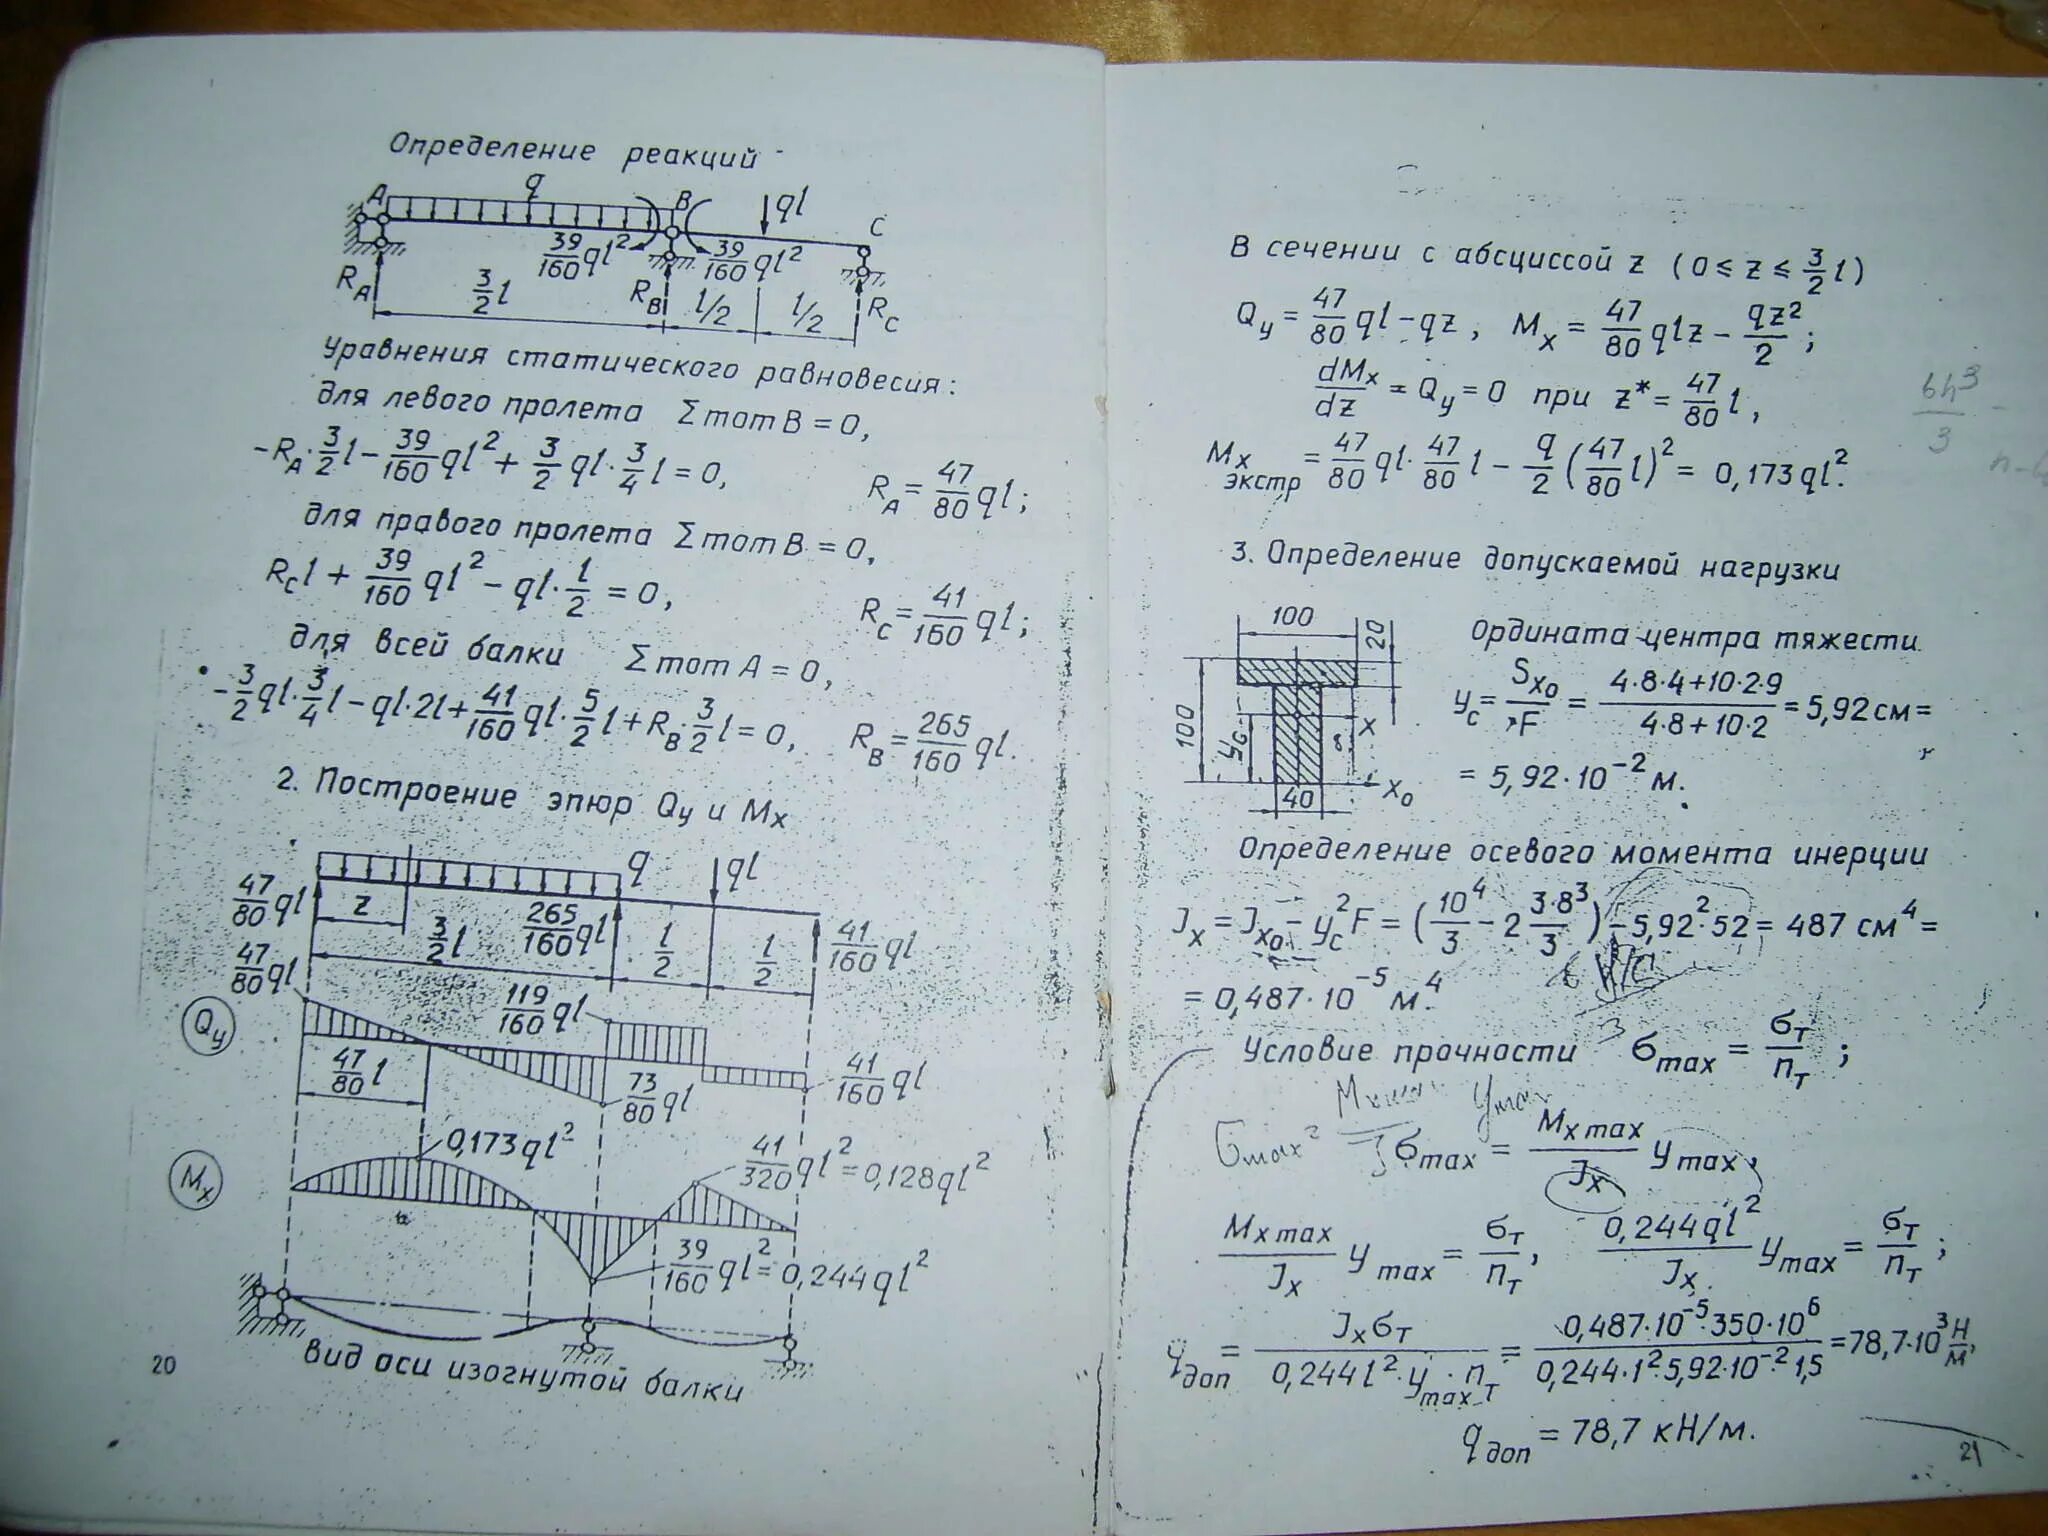 Определение реакций
A q B ql C
39/160 ql² 39/160 ql²
R_A 3/2 l R_B l/2 l/2 R_C
Уравнения статического равновесия:
для левого пролета Σ mom B = 0,
-R_A·3/2 l - 39/160 ql² + 3/2 ql·3/4 l = 0, R_A = 47/80 ql;
для правого пролета Σ mom B = 0,
R_C l + 39/160 ql² - ql·l/2 = 0, R_C = 41/160 ql;
для всей балки Σ mom A = 0,
-3/2 ql·3/4 l - ql·2l + 41/160 ql·5/2 l + R_B·3/2 l = 0, R_B = 265/160 ql.
2. Построение эпюр Q_y и M_x
q ql
47/80 ql z 3/2 l 265/160 ql l/2 l/2 41/160 ql
47/80 ql 119/160 ql
Q_y
47/80 l 73/80 ql 41/160 ql
0,173ql² 41/320 ql² = 0,128ql²
M_x
39/160 ql² = 0,244ql²
Вид оси изогнутой балки
20
В сечении с абсциссой z (0 ≤ z ≤ 3/2 l)
Q_y = 47/80 ql - qz, M_x = 47/80 qlz - qz²/2;
dM_x/dz = Q_y = 0 при z* = 47/80 l,
M_x экстр = 47/80 ql·47/80 l - q/2 (47/80 l)² = 0,173ql².
bh³/3
3. Определение допускаемой нагрузки
100 20
100 y_c x
40 x₀
Ордината центра тяжести
y_c = S_x₀/F = (4·8·4+10·2·9)/(4·8+10·2) = 5,92 см =
= 5,92·10⁻² м.
Определение осевого момента инерции
J_x = J_x₀ - y_c²F = (10⁴/3 - 2 3·8³/3) - 5,92²·52 = 487 см⁴ =
= 0,487·10⁻⁵ м⁴.
Условие прочности σ_max = σ_т/n_т;
σ_max = M_x max/J_x y_max,
M_x max/J_x y_max = σ_т/n_т, 0,244ql²/J_x y_max = σ_т/n_т;
q_доп = J_x σ_т/(0,244l²·y_max·n_т) = 0,487·10⁻⁵·350·10⁶/(0,244·1²·5,92·10⁻²·1,5) = 78,7·10³ Н/м,
q_доп = 78,7 кН/м.
21